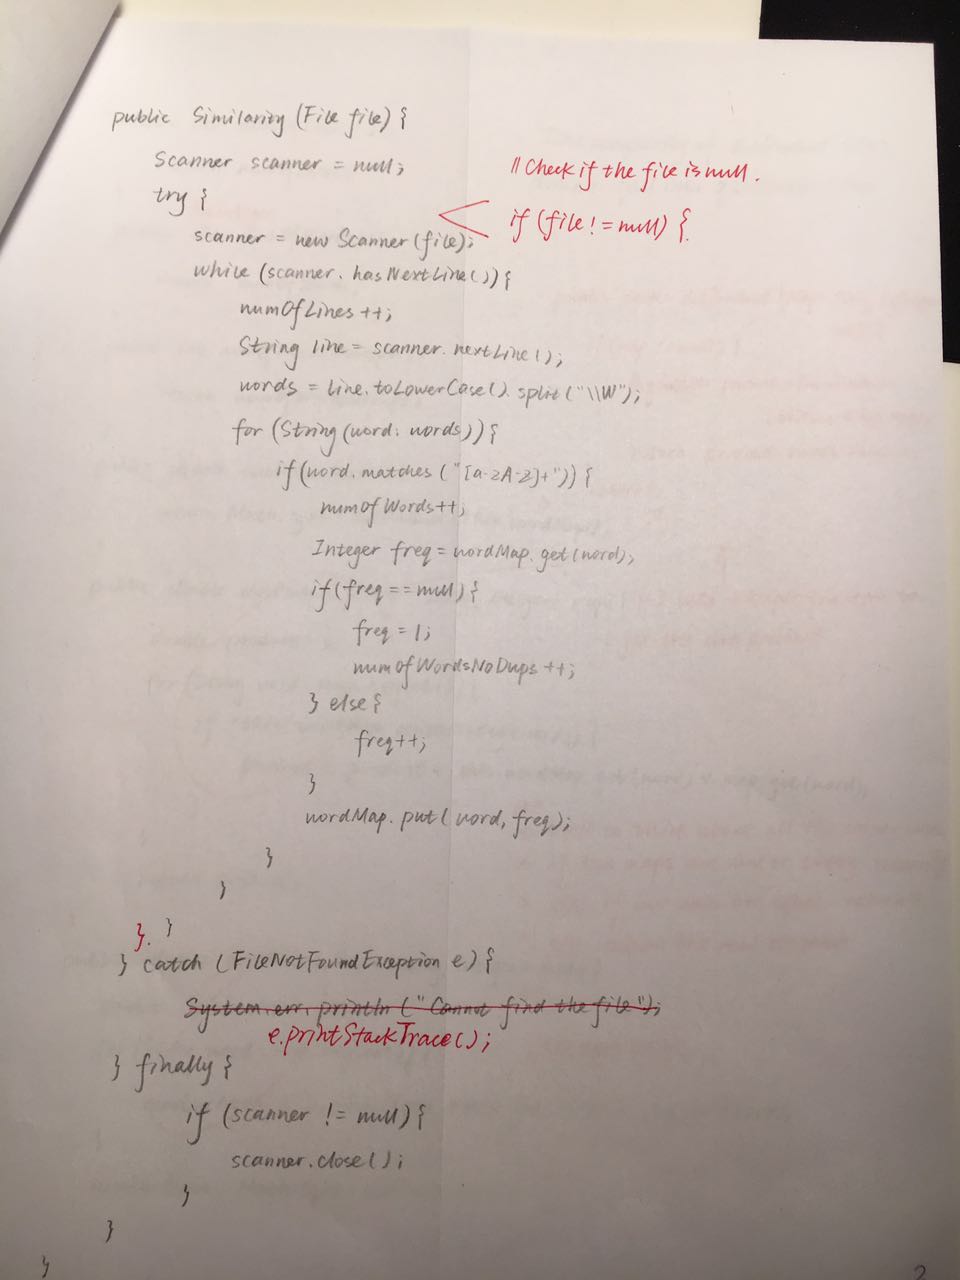 public Similarity (File file) {
Scanner scanner = null;
// Check if the file is null.
try {
if (file != null) {
scanner = new Scanner (file);
while (scanner. hasNextLine()) {
numOfLines ++;
String line = scanner. nextLine();
words = line. toLowerCase(). split ("\\W");
for (String (word: words)) {
if (word. matches ("[a-zA-Z]+")) {
numOfWords++;
Integer freq = wordMap. get (word);
if (freq == null) {
freq = 1;
numOfWordsNoDups ++;
} else {
freq++;
}
wordMap. put( word, freq);
}
}
}. }
} catch (FileNotFoundException e) {
System. err. println ("Cannot find the file");
e.printStackTrace();
} finally {
if (scanner != null) {
scanner. close();
}
}
}
2